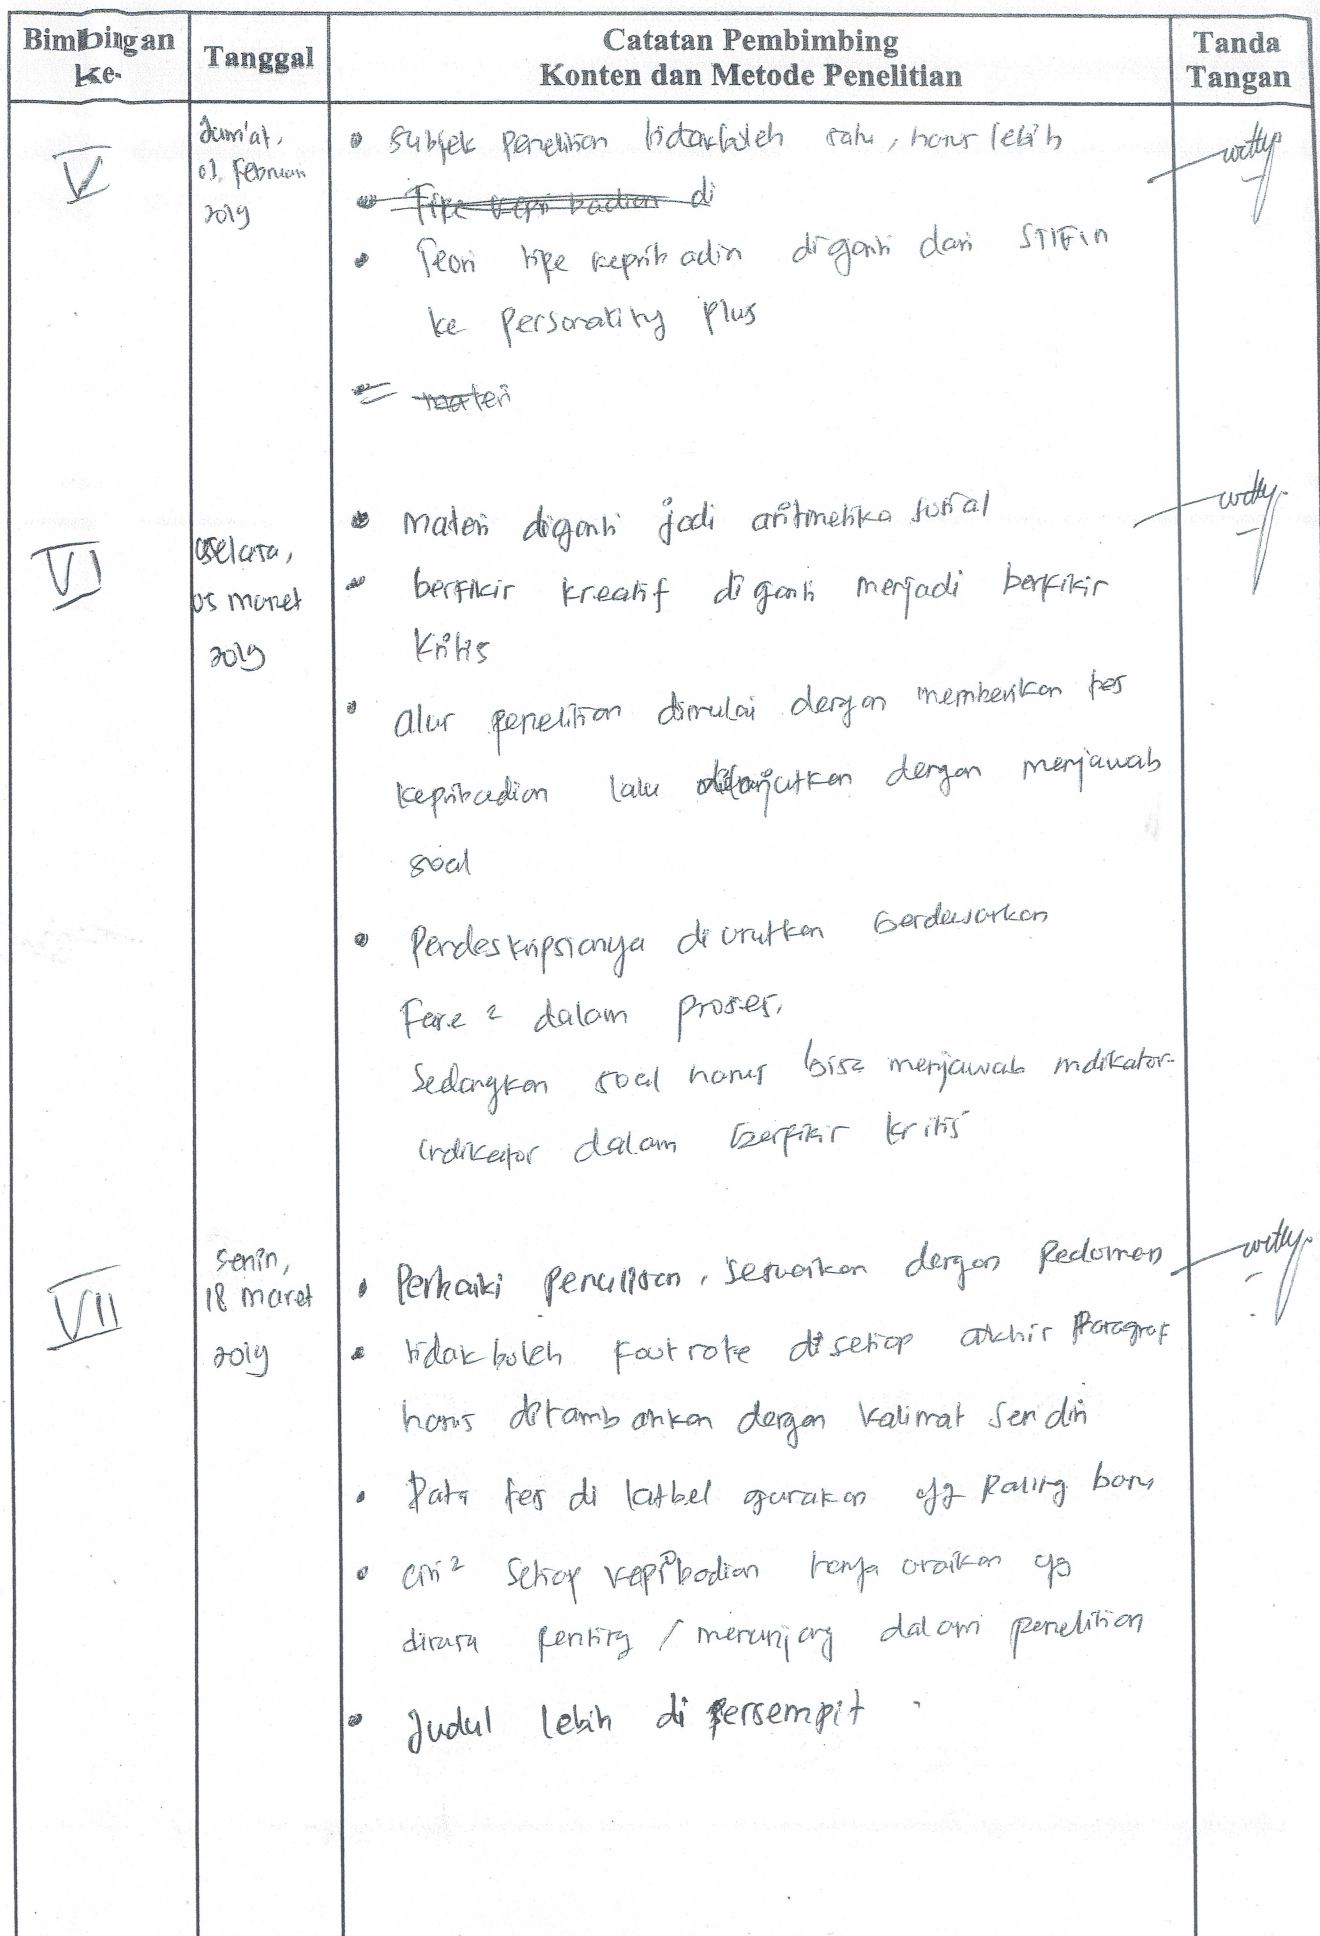 Bimbingan ke-
Tanggal
Catatan Pembimbing
Konten dan Metode Penelitian
Tanda
Tangan
V
Jum'at,
01 Februari
2019
• Subjek Penelitian tidak boleh satu, harus lebih
• Tipe kepribadian di
• Teori tipe kepribadin diganti dari STIFIn
ke Personality Plus
materi
VI
Selasa,
05 maret
2019
• Materi diganti jadi aritmetika sosial
• berfikir kreatif diganti menjadi berfikir
Kritis
• alur penelitian dimulai dengan memberikan tes
kepribadian lalu dilanjutkan dengan menjawab
soal
• Pendeskripsianya di urutkan berdasarkan
Fase 2 dalam proses,
Sedangkan soal harus bisa menjawab indikator-
indikator dalam berfikir kritis
VII
Senin,
18 maret
2019
• Perbaiki penulisan, sesuaikan dengan Pedoman
• tidak boleh footnote di setiap akhir Paragraf
harus ditambahkan dengan kalimat sendiri
• Data tes di latbel gunakan yg Paling baru
• ciri2 Setiap kepribadian hanya uraikan yg
dirasa penting / menunjang dalam penelitian
• Judul lebih di persempit